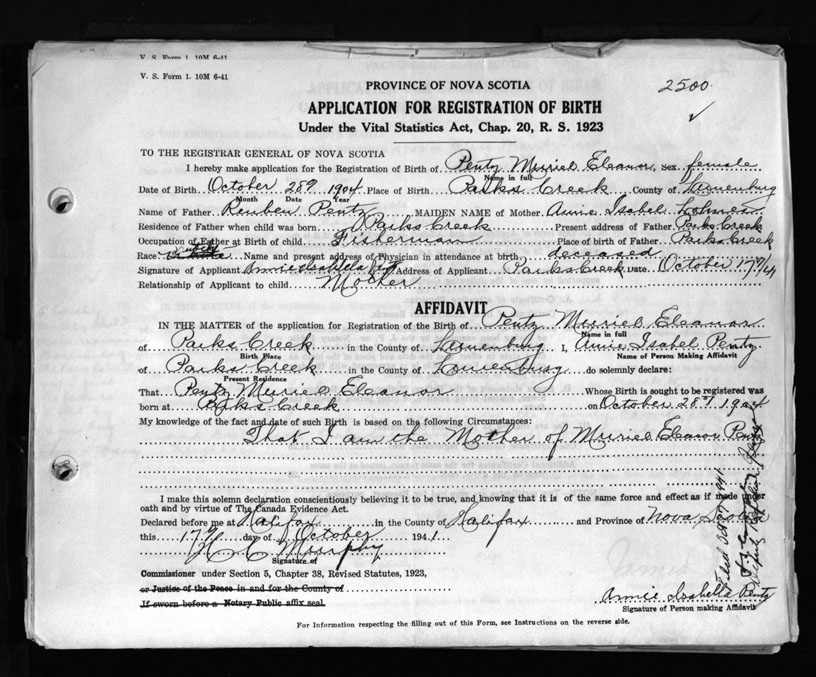 V. S. Form 1. 10M 6-41
V. S. Form 1. 10M 6-41
PROVINCE OF NOVA SCOTIA
2500
✓
APPLICATION FOR REGISTRATION OF BIRTH
Under the Vital Statistics Act, Chap. 20, R. S. 1923
TO THE REGISTRAR GENERAL OF NOVA SCOTIA
I hereby make application for the Registration of Birth of Pentz Muriel Eleanor, Sex female
Name in full
Date of Birth October 28th 1904 Place of Birth Parks Creek, County of Lunenburg
Month Date Year
Name of Father Reuben Pentz MAIDEN NAME of Mother Annie Isabel Lohnes
Residence of Father when child was born Parks Creek Present address of Father Parks Creek
Occupation of Father at Birth of child Fisherman Place of birth of Father Parks Creek
Race Name and present address of Physician in attendance at birth deceased
Signature of Applicant Annie Isabella Pentz Address of Applicant Parks Creek Date October 17th/41
Relationship of Applicant to child Mother
AFFIDAVIT
IN THE MATTER of the application for Registration of Birth of Pentz Muriel Eleanor
Name in full
of Parks Creek in the County of Lunenburg I, Annie Isabel Pentz
Birth Place Name of Person Making Affidavit
of Parks Creek in the County of Lunenburg do solemnly declare:
Present Residence
That Pentz Muriel Eleanor Whose Birth is sought to be registered was
born at Parks Creek on October 28th 1904
My knowledge of the fact and date of such Birth is based on the following Circumstances:
That I am the Mother of Muriel Eleanor Pentz
I make this solemn declaration conscientiously believing it to be true, and knowing that it is of the same force and effect as if made under
oath and by virtue of The Canada Evidence Act.
Declared before me at Halifax in the County of Halifax and Province of Nova Scotia
this 17th day of October 1941
Murphy
Signature of
Commissioner under Section 5, Chapter 38, Revised Statutes, 1923,
or Justice of the Peace in and for the County of
If sworn before a Notary Public affix seal.
Annie Isabella Pentz
Signature of Person making Affidavit
For Information respecting the filling out of this Form, see Instructions on the reverse side.